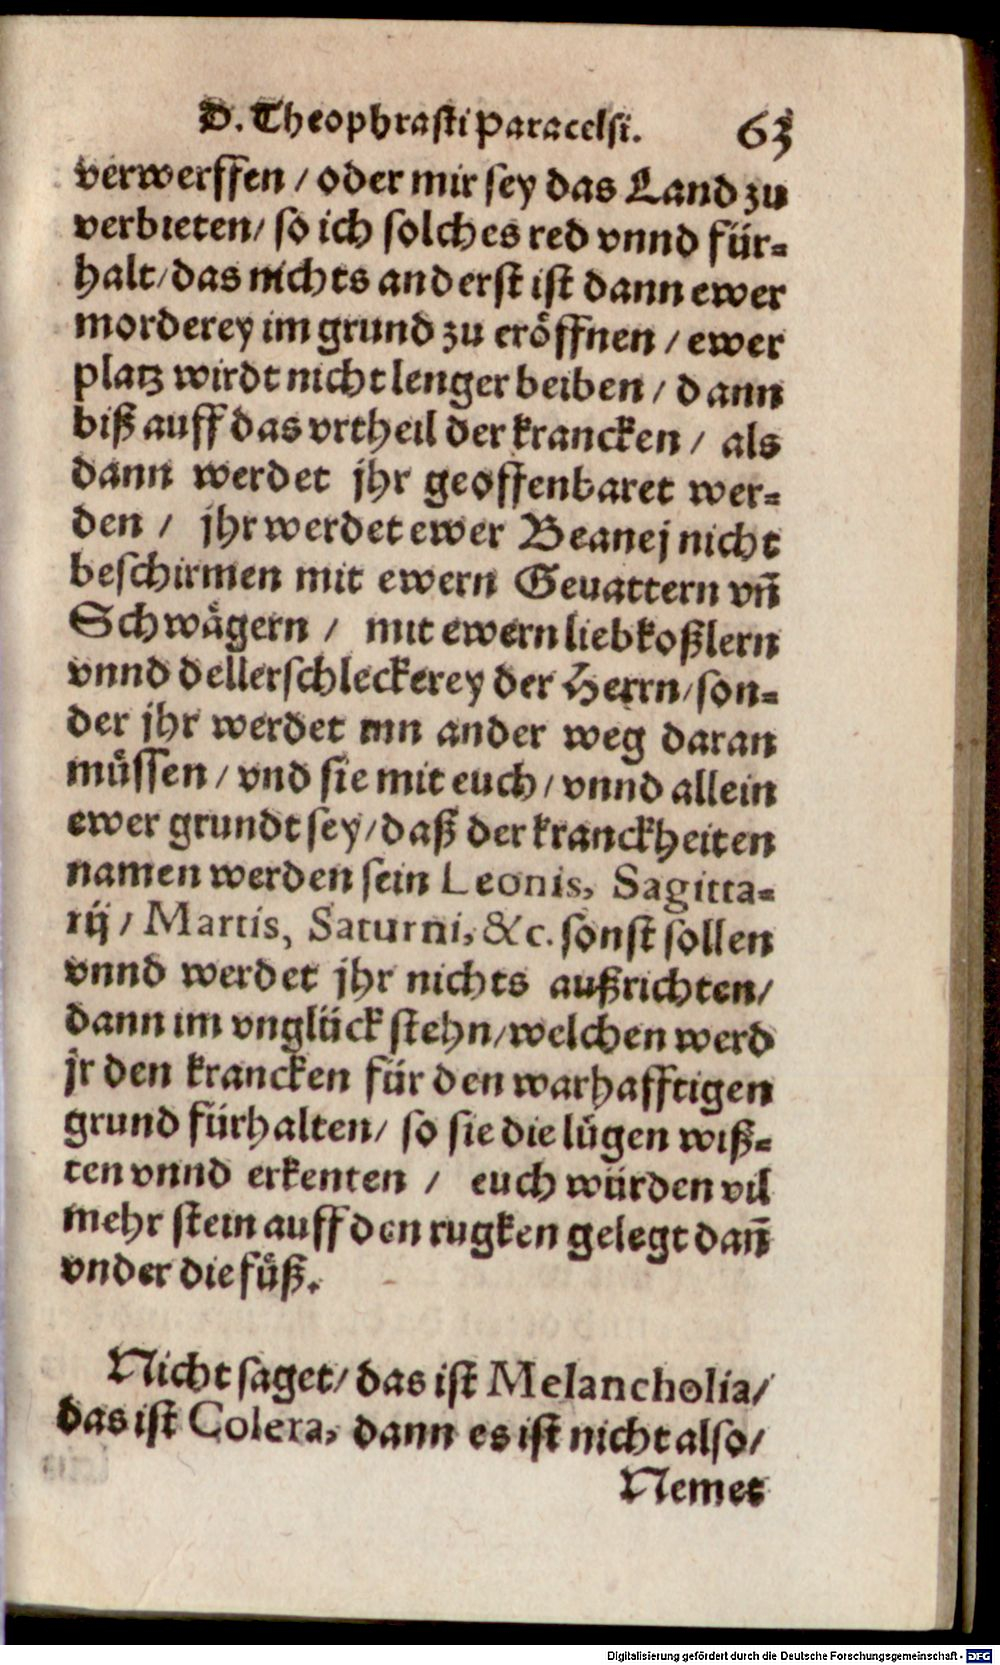 D. Theophrasti Paracelsi. 63
verwerffen / oder mir sey das Land zu
verbieten / so ich solches red vnnd für-
halt / das nichts anderst ist dann ewer
morderey im grund zu eröffnen / ewer
platz wirdt nicht lenger beiben / dann
biß auff das vrtheil der krancken / als
dann werdet jhr geoffenbaret wer-
den / jhr werdet ewer Beanej nicht
beschirmen mit ewern Geuattern vñ
Schwägern / mit ewern liebkoßlern
vnnd dellerschleckerey der Herrn / son-
der jhr werdet inn ander weg daran
müssen / vnd sie mit euch / vnnd allein
ewer grundt sey / daß der kranckheiten
namen werden sein Leonis, Sagitta-
rij / Martis, Saturni, &c. sonst sollen
vnnd werdet jhr nichts außrichten /
dann im vnglück stehn / welchen werd
jr den krancken für den warhafftigen
grund fürhalten / so sie die lügen wiß-
ten vnnd erkenten / euch würden vil
mehr stein auff den rugken gelegt dañ
vnder die füß.
Nicht saget / das ist Melancholia /
das ist Colera, dann es ist nicht also /
Nemet
Digitalisierung gefördert durch die Deutsche Forschungsgemeinschaft - DFG